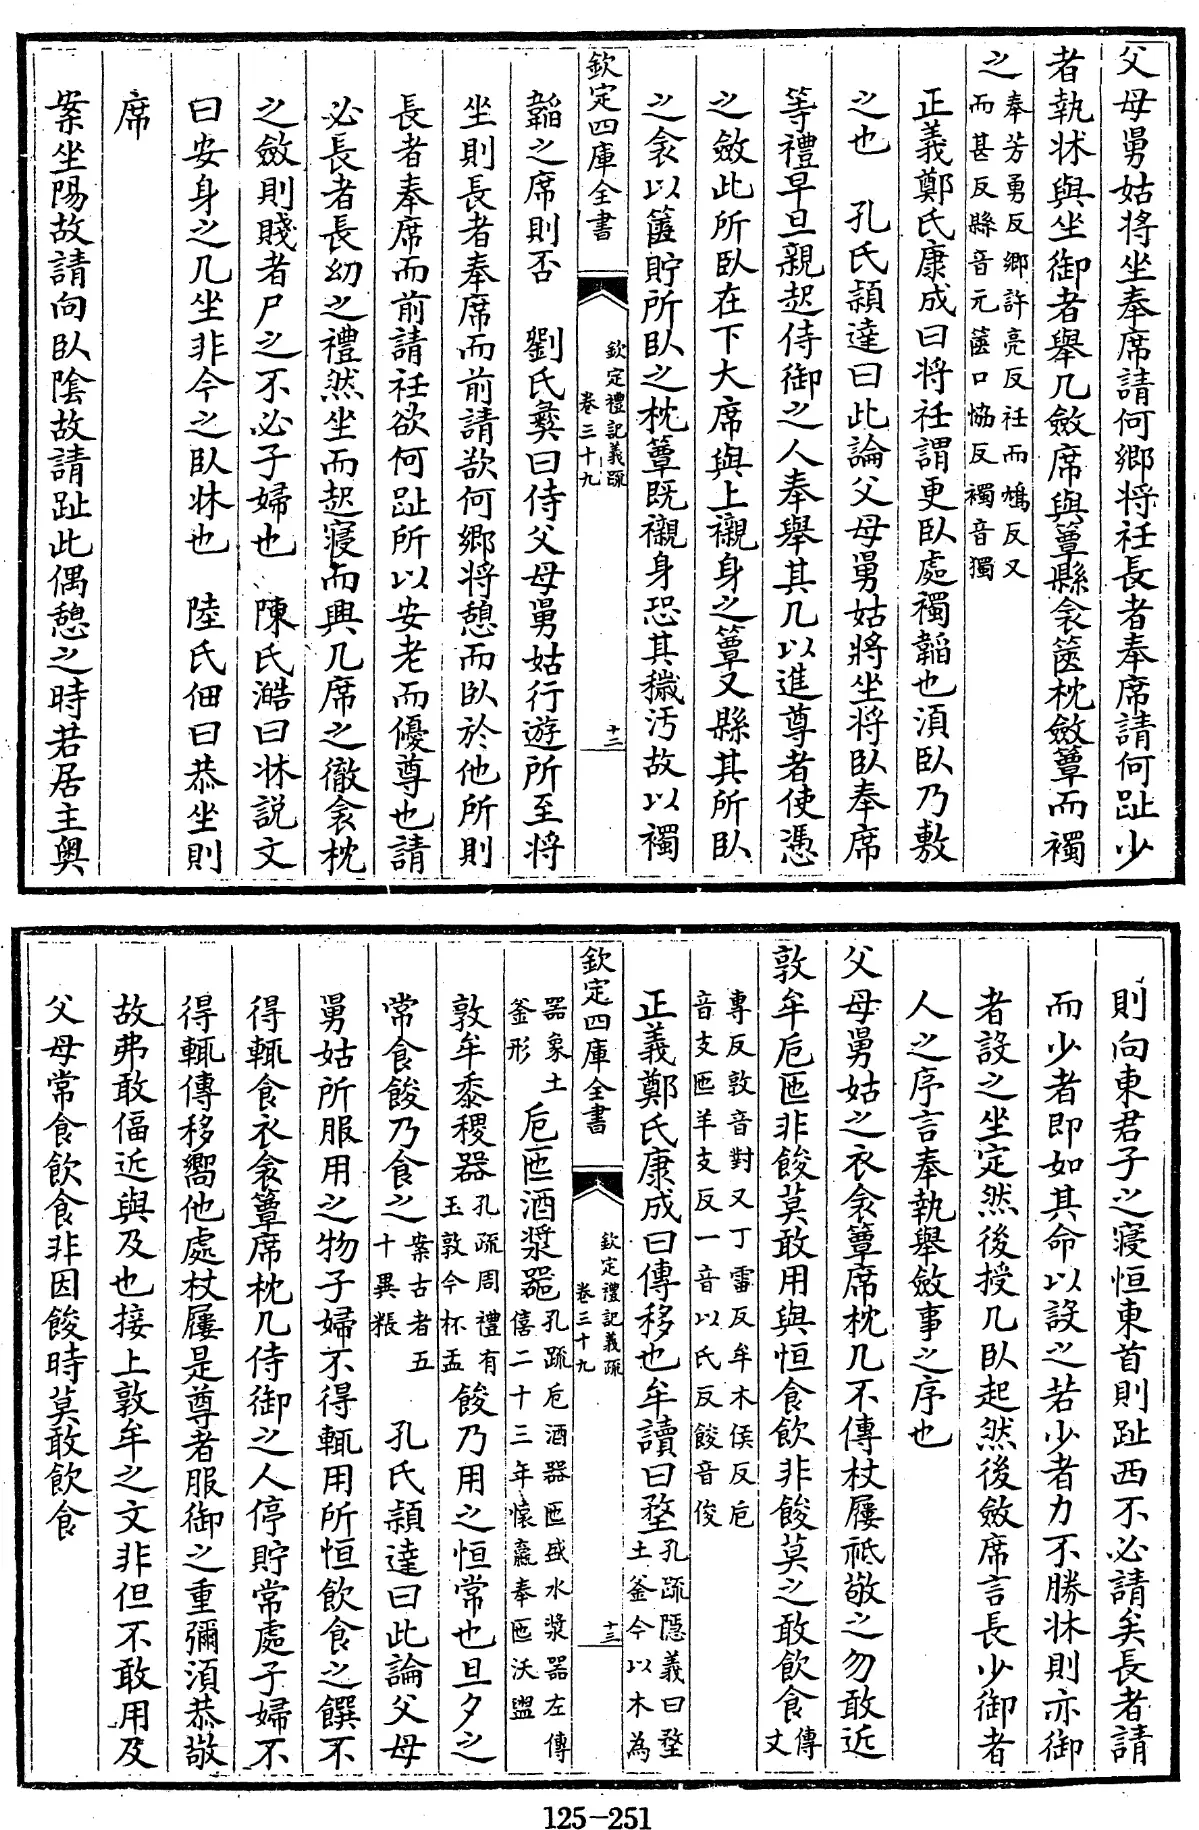 父母舅姑將坐奉席請何鄉將衽長者奉席請何趾少
者執牀與坐御者舉几斂席與簟縣衾篋枕斂簟而襡
之奉芳勇反鄉許亮反衽而鴆反又
而甚反縣音元篋口協反襡音獨
正義鄭氏康成曰將衽謂更臥處襡韜也須臥乃敷
之也　孔氏穎達曰此論父母舅姑將坐將臥奉席
等禮早旦親起侍御之人奉舉其几以進尊者使憑
之斂此所臥在下大席與上襯身之簟又縣其所臥
之衾以篋貯所臥之枕簟既襯身恐其穢汚故以襡
欽定四庫全書
欽定禮記義疏
卷三十九
十二
韜之席則否　劉氏彝曰侍父母舅姑行遊所至將
坐則長者奉席而前請欲何鄉將憩而臥於他所則
長者奉席而前請衽欲何趾所以安老而優尊也請
必長者長幼之禮然坐而起寢而興几席之徹衾枕
之斂則賤者尸之不必子婦也　陳氏澔曰牀說文
曰安身之几坐非今之臥牀也　陸氏佃曰恭坐則
席
案坐陽故請向臥陰故請趾此偶憩之時若居主奧
則向東君子之寢恒東首則趾西不必請矣長者請
而少者即如其命以設之若少者力不勝牀則亦御
者設之坐定然後授几臥起然後斂席言長少御者
人之序言奉執舉斂事之序也
父母舅姑之衣衾簟席枕几不傳杖屨祗敬之勿敢近
敦牟卮匜非餕莫敢用與恒食飲非餕莫之敢飲食傳
丈
專反敦音對又丁雷反牟木侯反卮
音支匜羊支反一音以氏反餕音俊
正義鄭氏康成曰傳移也牟讀曰堥孔疏隱義曰堥
土釜今以木為
欽定四庫全書
欽定禮記義疏
卷三十九
十三
器象土
釜形　卮匜酒漿器孔疏卮酒器匜盛水漿器左傳
僖二十三年懷嬴奉匜沃盥
敦牟黍稷器孔疏周禮有
玉敦今杯盂　餕乃用之恒常也旦夕之
常食餕乃食之案古者五
十異粻　孔氏穎達曰此論父母
舅姑所服用之物子婦不得輒用所恒飲食之饌不
得輒食衣衾簟席枕几侍御之人停貯常處子婦不
得輒傳移嚮他處杖屨是尊者服御之重彌須恭敬
故弗敢偪近與及也接上敦牟之文非但不敢用及
父母常食飲食非因餕時莫敢飲食
125-251